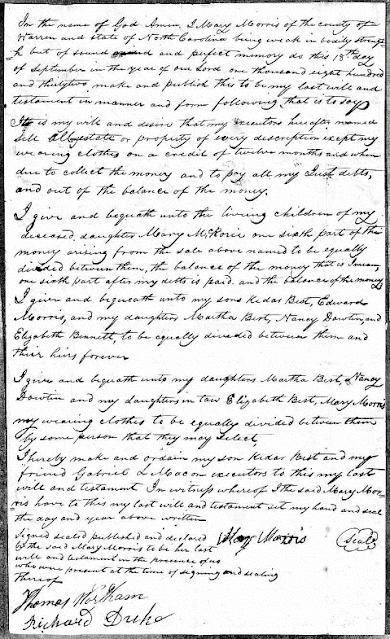 In the name of God Amen, I Mary Morris of the county of
Warren and state of North Carolina being weak in bodily strength
& but of sound and perfect memory do this 13th day
of September in the year of our Lord one thousand eight hundred
and thirty two make and publish this to be my last will and
testament in manner and form following that is to say
It is my will and desire that my executors hereafter named
sell all estate or property of every discription except my
wearing clothes on a credit of twelve months and when
due to collect the money and to pay all my Just debts,
and out of the balance of the money.
I give and bequeath unto the living children of my
deceased daughter Mary one sixth part of the
money arising from the sale above named to be equally
divided between them, the balance of the money that is I mean
one sixth part after my debts is paid. and the balance of the money
I give and bequeath unto my sons Kedar Best, Edward
Morris, and my daughters Martha Best, Nancy Dowtin, and
Elizabeth Bennett, to be equally divided between them and
their heirs forever
I give and bequeath unto my daughters Martha Best, Nancy
Dowtin and my daughters in law Elizabeth Best, Mary Morris
my wearing clothes to be equally divided between them
by some person that they may select
I hereby make and ordain my son Kedar Best and my
friend Gabriel L Macon executors to this my last
will and testament In witness whereof I the said Mary Mor
ris have to this my last will and testament set my hand and seal
the day and year above written
Signed sealed published and declared
by the said Mary Morris to be her last
will and testament in the presence of us
who were present at the time of signing and sealing
thereof
Mary Morris (Seal)
Thomas
Richard Duke